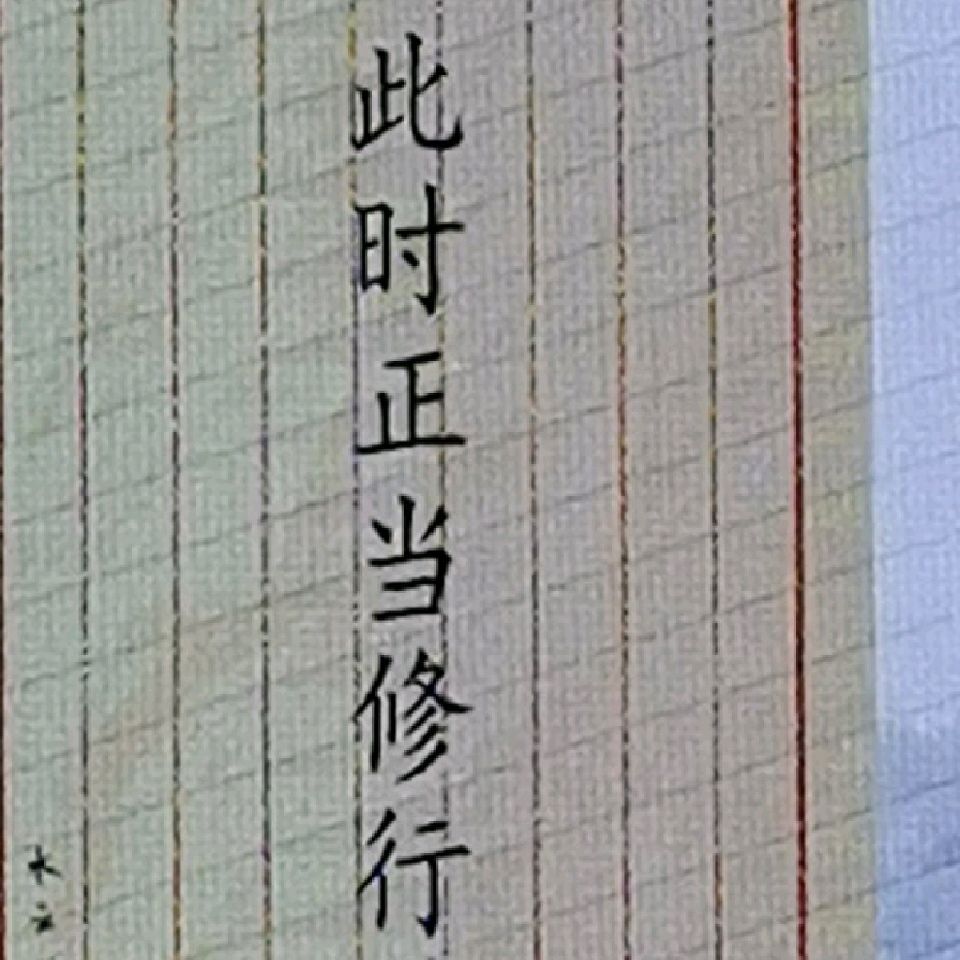 此时正当修行